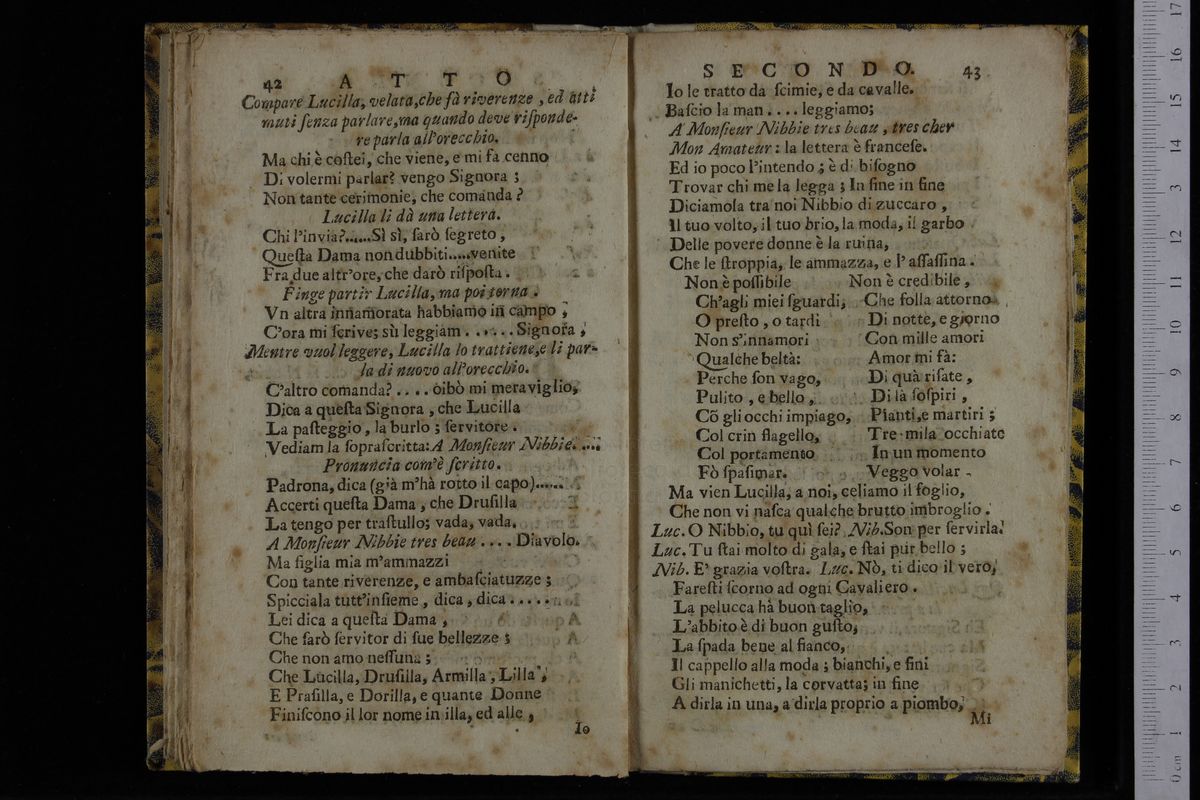 42 A T T O
Compare Lucilla, velata, che fà riverenze, ed atti
muti senza parlare, ma quando deve risponde-
re parla all'orecchio.
Ma chi è costei, che viene, e mi fa cenno
Di volermi parlar? vengo Signora;
Non tante cerimonie, che comanda?
Lucilla li dà una lettera.
Chi l'invia?......Sì sì, sarò segreto,
Questa Dama non dubbiti.....venite
Fra due altr'ore, che darò risposta.
Finge partir Lucilla, ma poi torna.
Vn altra innamorata habbiamo in campo;
C'ora mi scrive; sù leggiam......Signora,
Mentre vuol leggere, Lucilla lo trattiene, e li par-
la di nuovo all'orecchio.
C'altro comanda?....oibò mi meraviglio,
Dica a questa Signora, che Lucilla
La pasteggio, la burlo; servitore.
Vediam la soprascritta: A Monsieur Nibbie.....
Pronuncia com'è scritto.
Padrona, dica (già m'hà rotto il capo)......
Accerti questa Dama, che Drusilla
La tengo per trastullo; vada, vada.
A Monsieur Nibbie tres beau....Diavolo.
Ma figlia mia m'ammazzi
Con tante riverenze, e ambasciatuzze;
Spicciala tutt'insieme, dica, dica.....
Lei dica a questa Dama,
Che sarò servitor di sue bellezze;
Che non amo nessuna;
Che Lucilla, Drusilla, Armilla, Lilla,
E Prasilla, e Dorilla, e quante Donne
Finiscono il lor nome in illa, ed alle,
Io
S E C O N D O. 43
Io le tratto da scimie, e da cavalle.
Bascio la man....leggiamo;
A Monsieur Nibbie tres beau, tres cher
Mon Amateur: la lettera è francese.
Ed io poco l'intendo; è di bisogno
Trovar chi me la legga; In fine in fine
Diciamola tra noi Nibbio di zuccaro,
Il tuo volto, il tuo brio, la moda, il garbo
Delle povere donne è la ruina,
Che le stroppia, le ammazza, e l'assassina.
Non è possibile
Ch'agli miei sguardi,
O presto, o tardi
Non s'innamori
Qualche beltà:
Perche son vago,
Pulito, e bello,
Cõ gli occhi impiago,
Col crin flagello,
Col portamento
Fò spasimar.
Non è credibile,
Che folla attorno
Di notte, e giorno
Con mille amori
Amor mi fà:
Di quà risate,
Di là sospiri,
Pianti, e martiri;
Tre mila occhiate
In un momento
Veggo volar.
Ma vien Lucilla, a noi, celiamo il foglio,
Che non vi nasca qualche brutto imbroglio.
Luc. O Nibbio, tu quì sei? Nib. Son per servirla.
Luc. Tu stai molto di gala, e stai pur bello;
Nib. E' grazia vostra. Luc. Nò, ti dico il vero,
Faresti scorno ad ogni Cavaliero.
La pelucca hà buon taglio,
L'abbito è di buon gusto,
La spada bene al fianco,
Il cappello alla moda; bianchi, e fini
Gli manichetti, la corvatta; in fine
A dirla in una, a dirla proprio a piombo,
Mi
0 cm 1 2 3 4 5 6 7 8 9 10 11 12 13 14 15 16 17